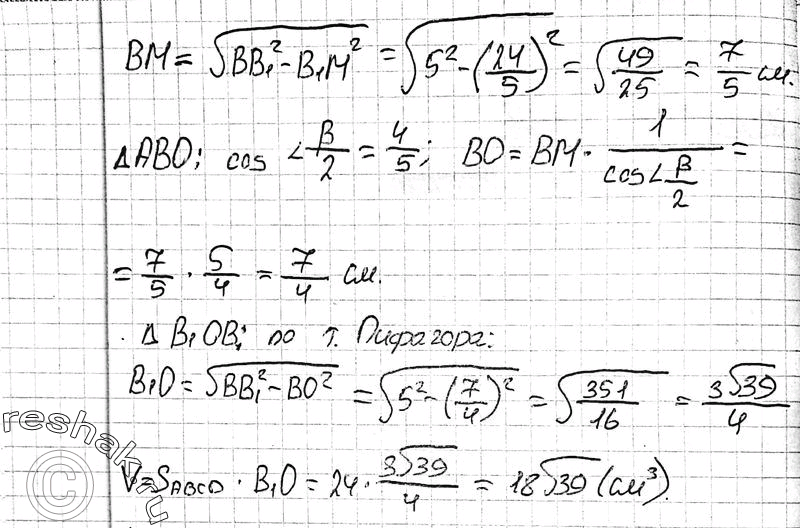 BM = √(BB₁² - B₁M²) = √(5² - (24/5)²) = √(49/25) = 7/5 см.
△ABO; cos ∠β/2 = 4/5; BO = BM · 1/(cos∠β/2) =
= 7/5 · 5/4 = 7/4 см.
△ B₁OB; по т. Пифагора:
B₁O = √(BB₁² - BO²) = √(5² - (7/4)²) = √(351/16) = 3√39/4
V = S_ABCD · B₁O = 24 · 3√39/4 = 18√39 (см³).
reshak.
©